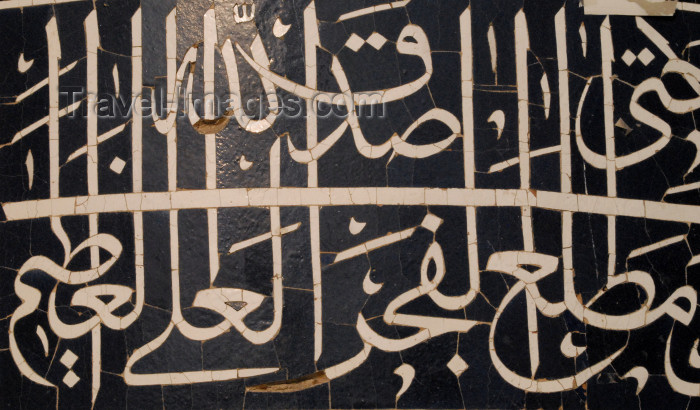 حتى مطلع الفجر صدق الله العلي العظيم
Travel-Images.com